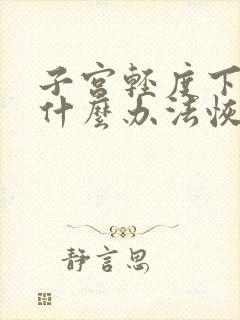 子宫轻度下
什麼办法恢
静言思